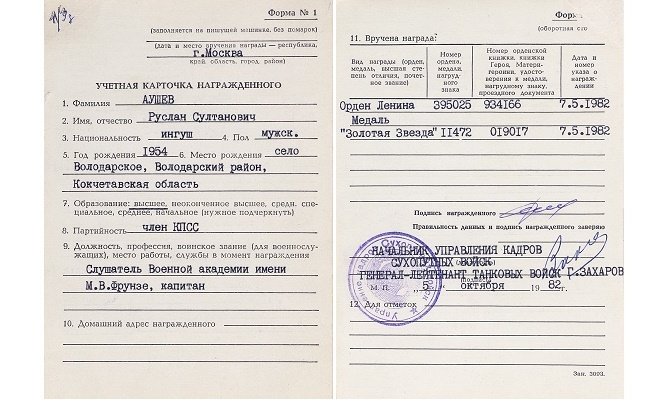 Форма № 1
(заполняется на пишущей машинке, без помарок)
(дата и место вручения награды — республика,
г.Москва
край, область, город, район)
УЧЕТНАЯ КАРТОЧКА НАГРАЖДЕННОГО
1. Фамилия АУШЕВ
2. Имя, отчество Руслан Султанович
3. Национальность ингуш 4. Пол мужск.
5. Год рождения 1954 6. Место рождения село
Володарское, Володарский район,
Кокчетавская область
7. Образование: высшее, неоконченное высшее, средн. спе-
циальное, среднее, начальное (нужное подчеркнуть)
8. Партийность член КПСС
9. Должность, профессия, воинское звание (для военнослу-
жащих), место работы, службы в момент награждения
Слушатель Военной академии имени
М.В.Фрунзе, капитан
10. Домашний адрес награжденного
(оборотная сто
11. Вручена награда:
Вид награды (орден, медаль, высшая степень отличия, почет-ное звание)
Номер ордена, медали, нагруд-ного знака
Номер орденской книжки, книжки Героя, Матери-героини, удосто-верения к медали, нагрудному знаку, проездного документа
Дата и номер указа о награж-дении
Орден Ленина 395025 934166 7.5.1982
Медаль
"Золотая Звезда" 11472 019017 7.5.1982
Подпись награжденного
Правильность данных и подпись награжденного заверяю
НАЧАЛЬНИК УПРАВЛЕНИЯ КАДРОВ
СУХОПУТНЫХ ВОЙСК
ГЕНЕРАЛ-ЛЕЙТЕНАНТ ТАНКОВЫХ ВОЙСК Г.ЗАХАРОВ
М. П. „5 октября 1982 г.
12. Для отметок
Зак. 3003.